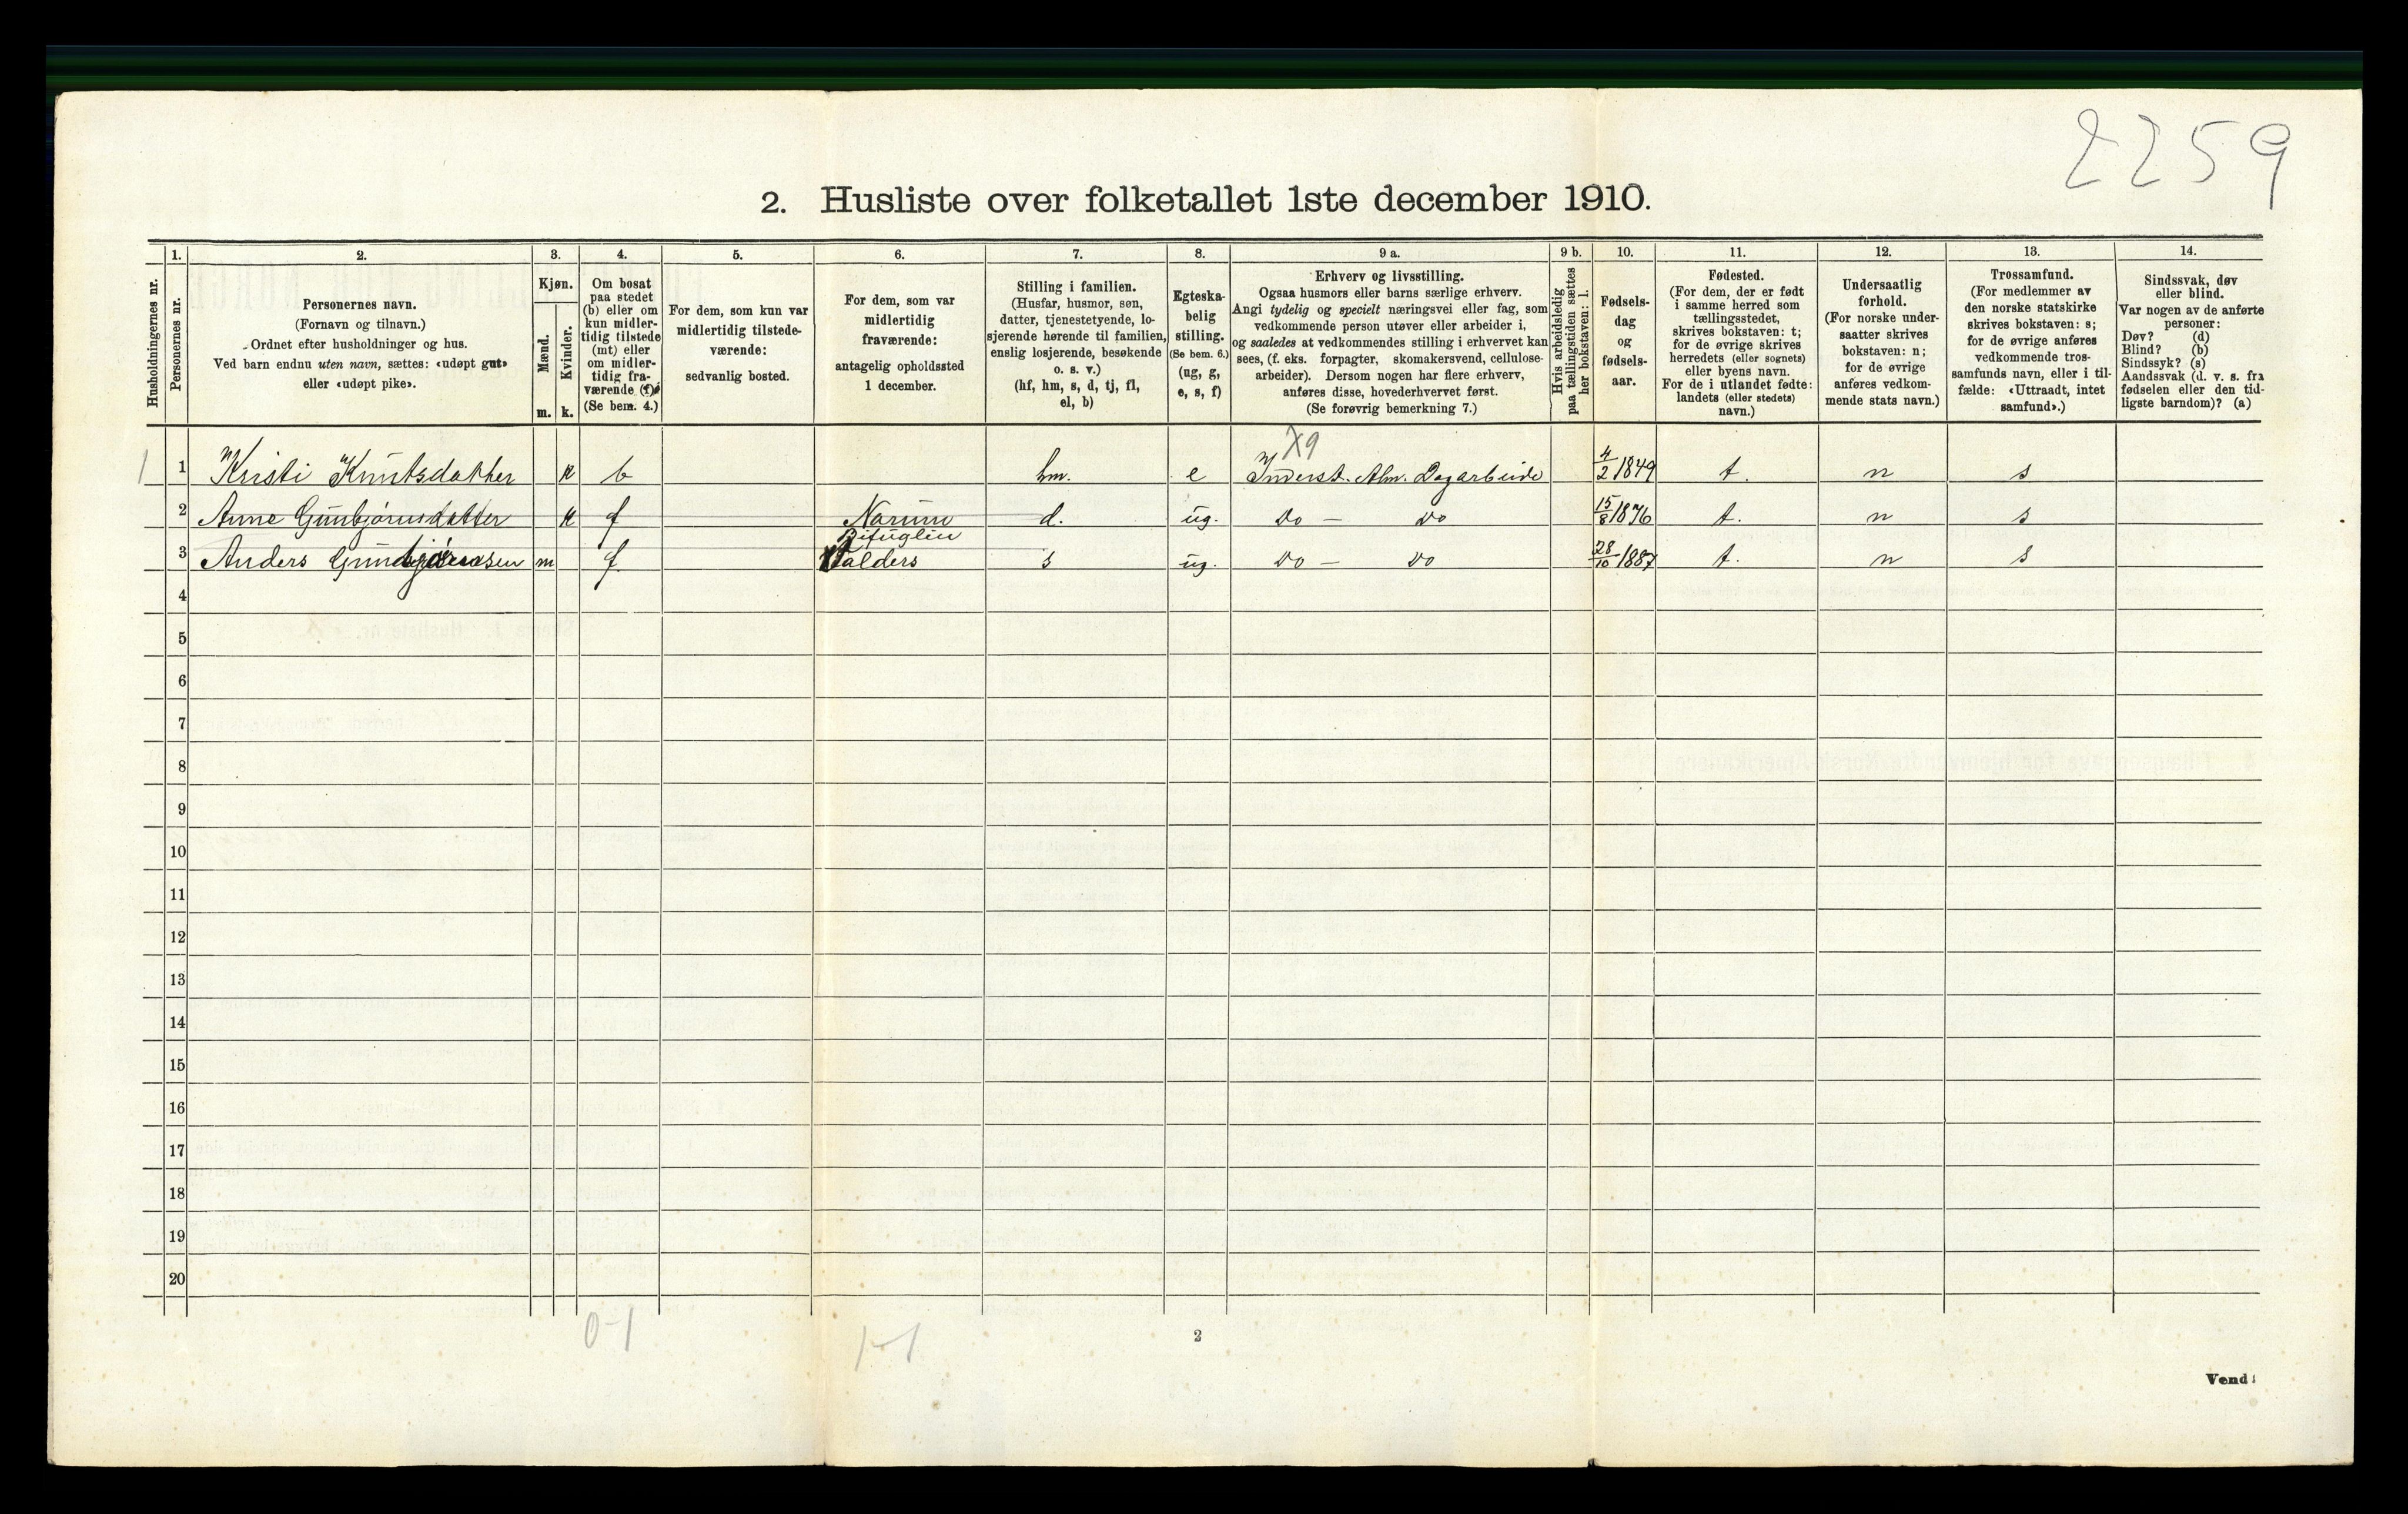 2259
2. Husliste over folketallet 1ste december 1910.
Husholdningernes nr.
1.
Personernes nr.
2.
Personernes navn.
(Fornavn og tilnavn.)
Ordnet efter husholdninger og hus.
Ved barn endnu uten navn, sættes: «udøpt gut»
eller «udøpt pike».
3.
Kjøn.
Mænd.
m.
Kvinder.
k.
4.
Om bosat
paa stedet
(b) eller om
kun midler-
tidig tilstede
(mt) eller
om midler-
tidig fra-
værende (f)
(Se bem. 4.)
5.
For dem, som kun var
midlertidig tilstede-
værende:
sedvanlig bosted.
6.
For dem, som var
midlertidig
fraværende:
antagelig opholdssted
1 december.
7.
Stilling i familien.
(Husfar, husmor, søn,
datter, tjenestetyende, lo-
sjerende hørende til familien,
enslig losjerende, besøkende
o. s. v.)
(hf, hm, s, d, tj, fl,
el, b)
8.
Egteska-
belig
stilling.
(Se bem. 6.)
(ug, g,
e, s, f)
9 a.
Erhverv og livsstilling.
Ogsaa husmors eller barns særlige erhverv.
Angi tydelig og specielt næringsvei eller fag, som
vedkommende person utøver eller arbeider i,
og saaledes at vedkommendes stilling i erhvervet kan
sees, (f. eks. forpagter, skomakersvend, cellulose-
arbeider). Dersom nogen har flere erhverv,
anføres disse, hovederhvervet først.
(Se forøvrig bemerkning 7.)
9 b.
Hvis arbeidsledig
paa tællingstiden sættes
her bokstaven: l.
10.
Fødsels-
dag
og
fødsels-
aar.
11.
Fødested.
(For dem, der er født
i samme herred som
tællingsstedet,
skrives bokstaven: t;
for de øvrige skrives
herredets (eller sognets)
eller byens navn.
For de i utlandet fødte:
landets (eller stedets)
navn.)
12.
Undersaatlig
forhold.
(For norske under-
saatter skrives
bokstaven: n;
for de øvrige
anføres vedkom-
mende stats navn.)
13.
Trossamfund.
(For medlemmer av
den norske statskirke
skrives bokstaven: s;
for de øvrige anføres
vedkommende tros-
samfunds navn, eller i til-
fælde: «Uttraadt, intet
samfund».)
14.
Sindssvak, døv
eller blind.
Var nogen av de anførte
personer:
Døv? (d)
Blind? (b)
Sindssyk? (s)
Aandssvak (d. v. s. fra
fødselen eller den tid-
ligste barndom)? (a)
X9
1 1 Kristi Knutsdatter k b hm. e Inderst. Alm. Dagarbeide 4/2 1849 t. n s
2 Anne Gunbjørnsdatter k f Narum d. ug. do — do 15/8 1876 t. n s
3 Anders Gunbjørnsen m f Valders s ug. do — do 28/10 1887 t. n s
4
5
6
7
8
9
10
11
12
13
14
15
16
17
18
19
20
0-1
1-1
2
Vend!